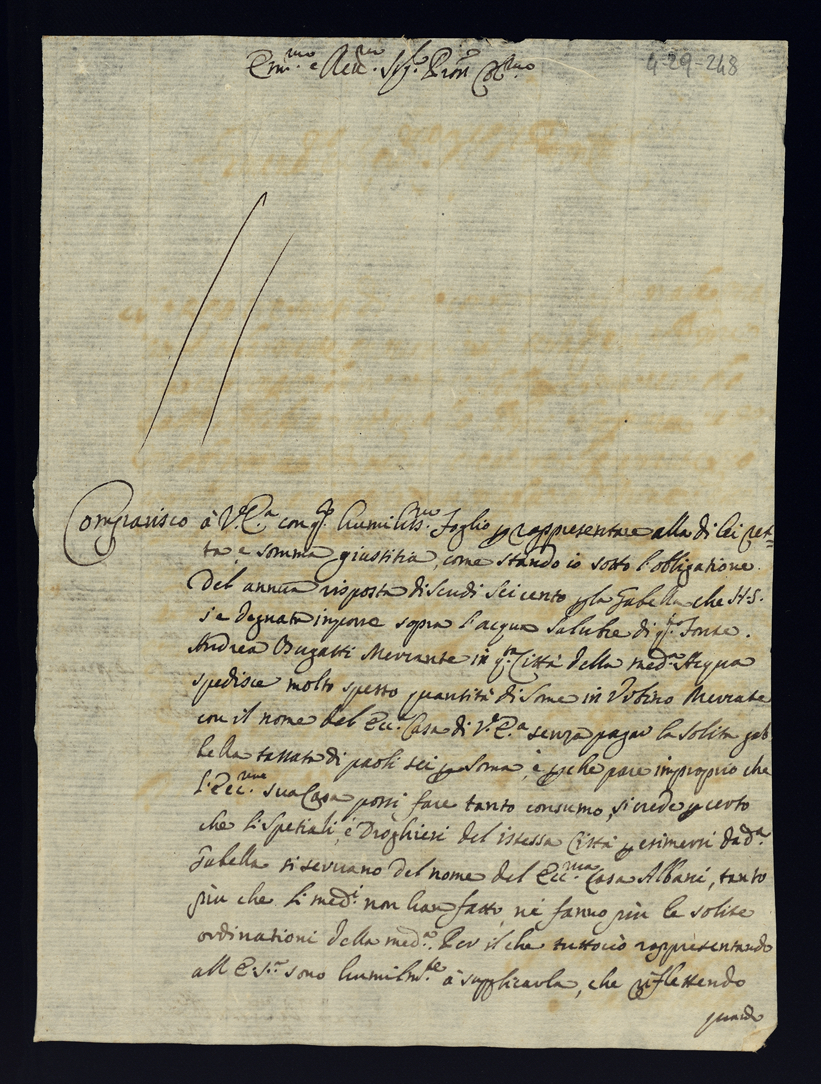 4-29-248
Em.mo e Rev.mo Sig.r P.ron Col.mo
Comparisco à V.ra E.a con q.o humiliss.mo foglio p rappresentare alla di lei ret=
ta, e somma giustitia, come stando io sotto l'obbligatione
del annua risposta di scudi seicento p la Gabella che N.S.
s'è degnata imporre sopra l'acqua salubre di q.to fonte.
Andrea Bugatti Mercante in q.ta Città della med.a Acqua
spedisce molto spesso quantità di some in Urbino Mercate
con il nome del Ecc.ma Casa di V.ra E.a senza pagar la solita gab
bella tassata di paoli sei p soma, e pche pare improprio che
l'Ecc.ma sua Casa possi fare tanto consumo, si crede p certo
che li Spetiali, è Droghieri del istessa Città p esimersi da d.a
Gabella si servano del nome del Ecc.ma Casa Albani, tanto
più che li med.i non han fatto, né fanno più le solite
ordinationi della med.a. Per il che tutto ciò rappresentando
all' E.S.ra sono humilm.te à supplicarla, che riflettendo